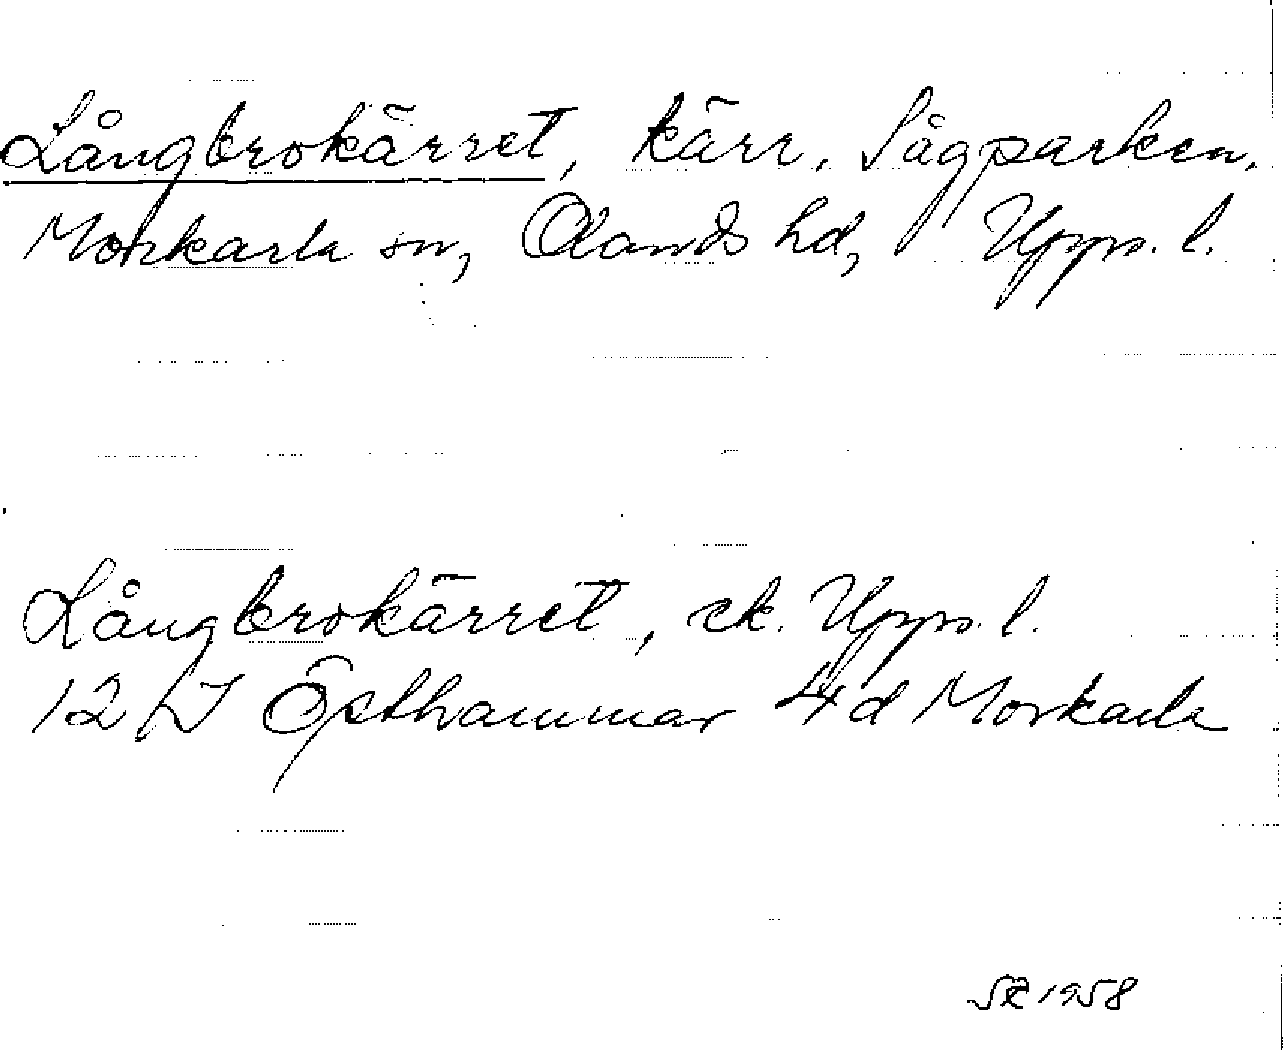 Långbrokärret, kärr, Sågparken,
Morkarla sn, Olands hd, Upps. l.
Långbrokärret, ek. Upps. l.
12 I Östhammar 4d Morkarla
1958